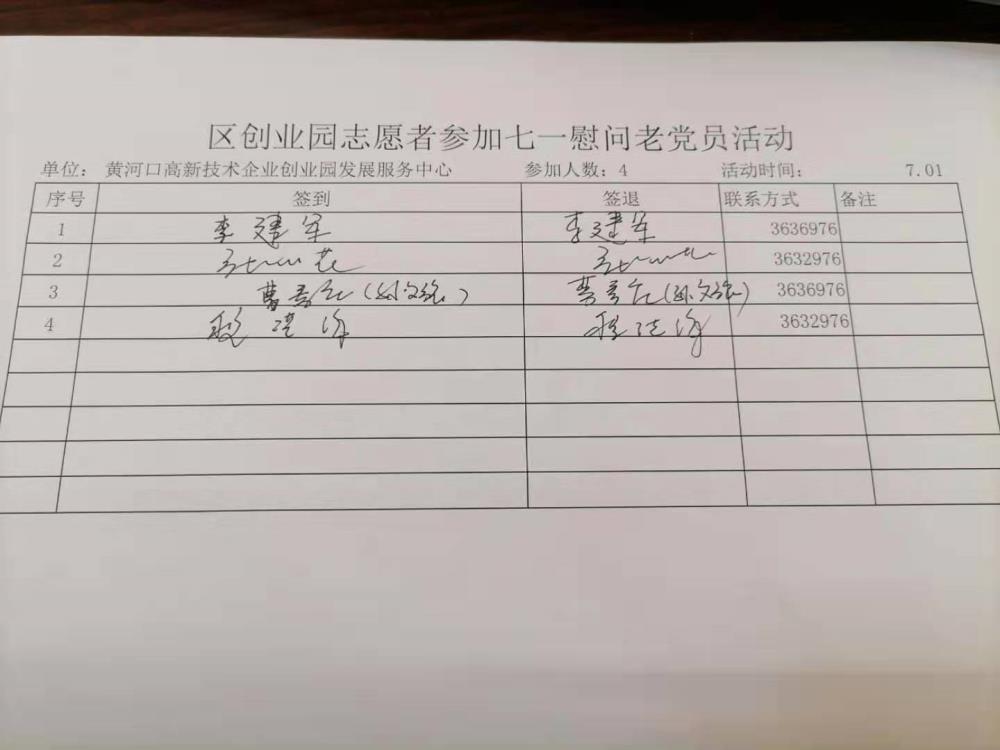 区创业园志愿者参加七一慰问老党员活动
单位： 黄河口高新技术企业创业园发展服务中心 参加人数：4 活动时间： 7.01
序号 签到 签退 联系方式 备注
1 李建军 李建军 3636976
2 3632976
3 曹 曹 3636976
4 3632976